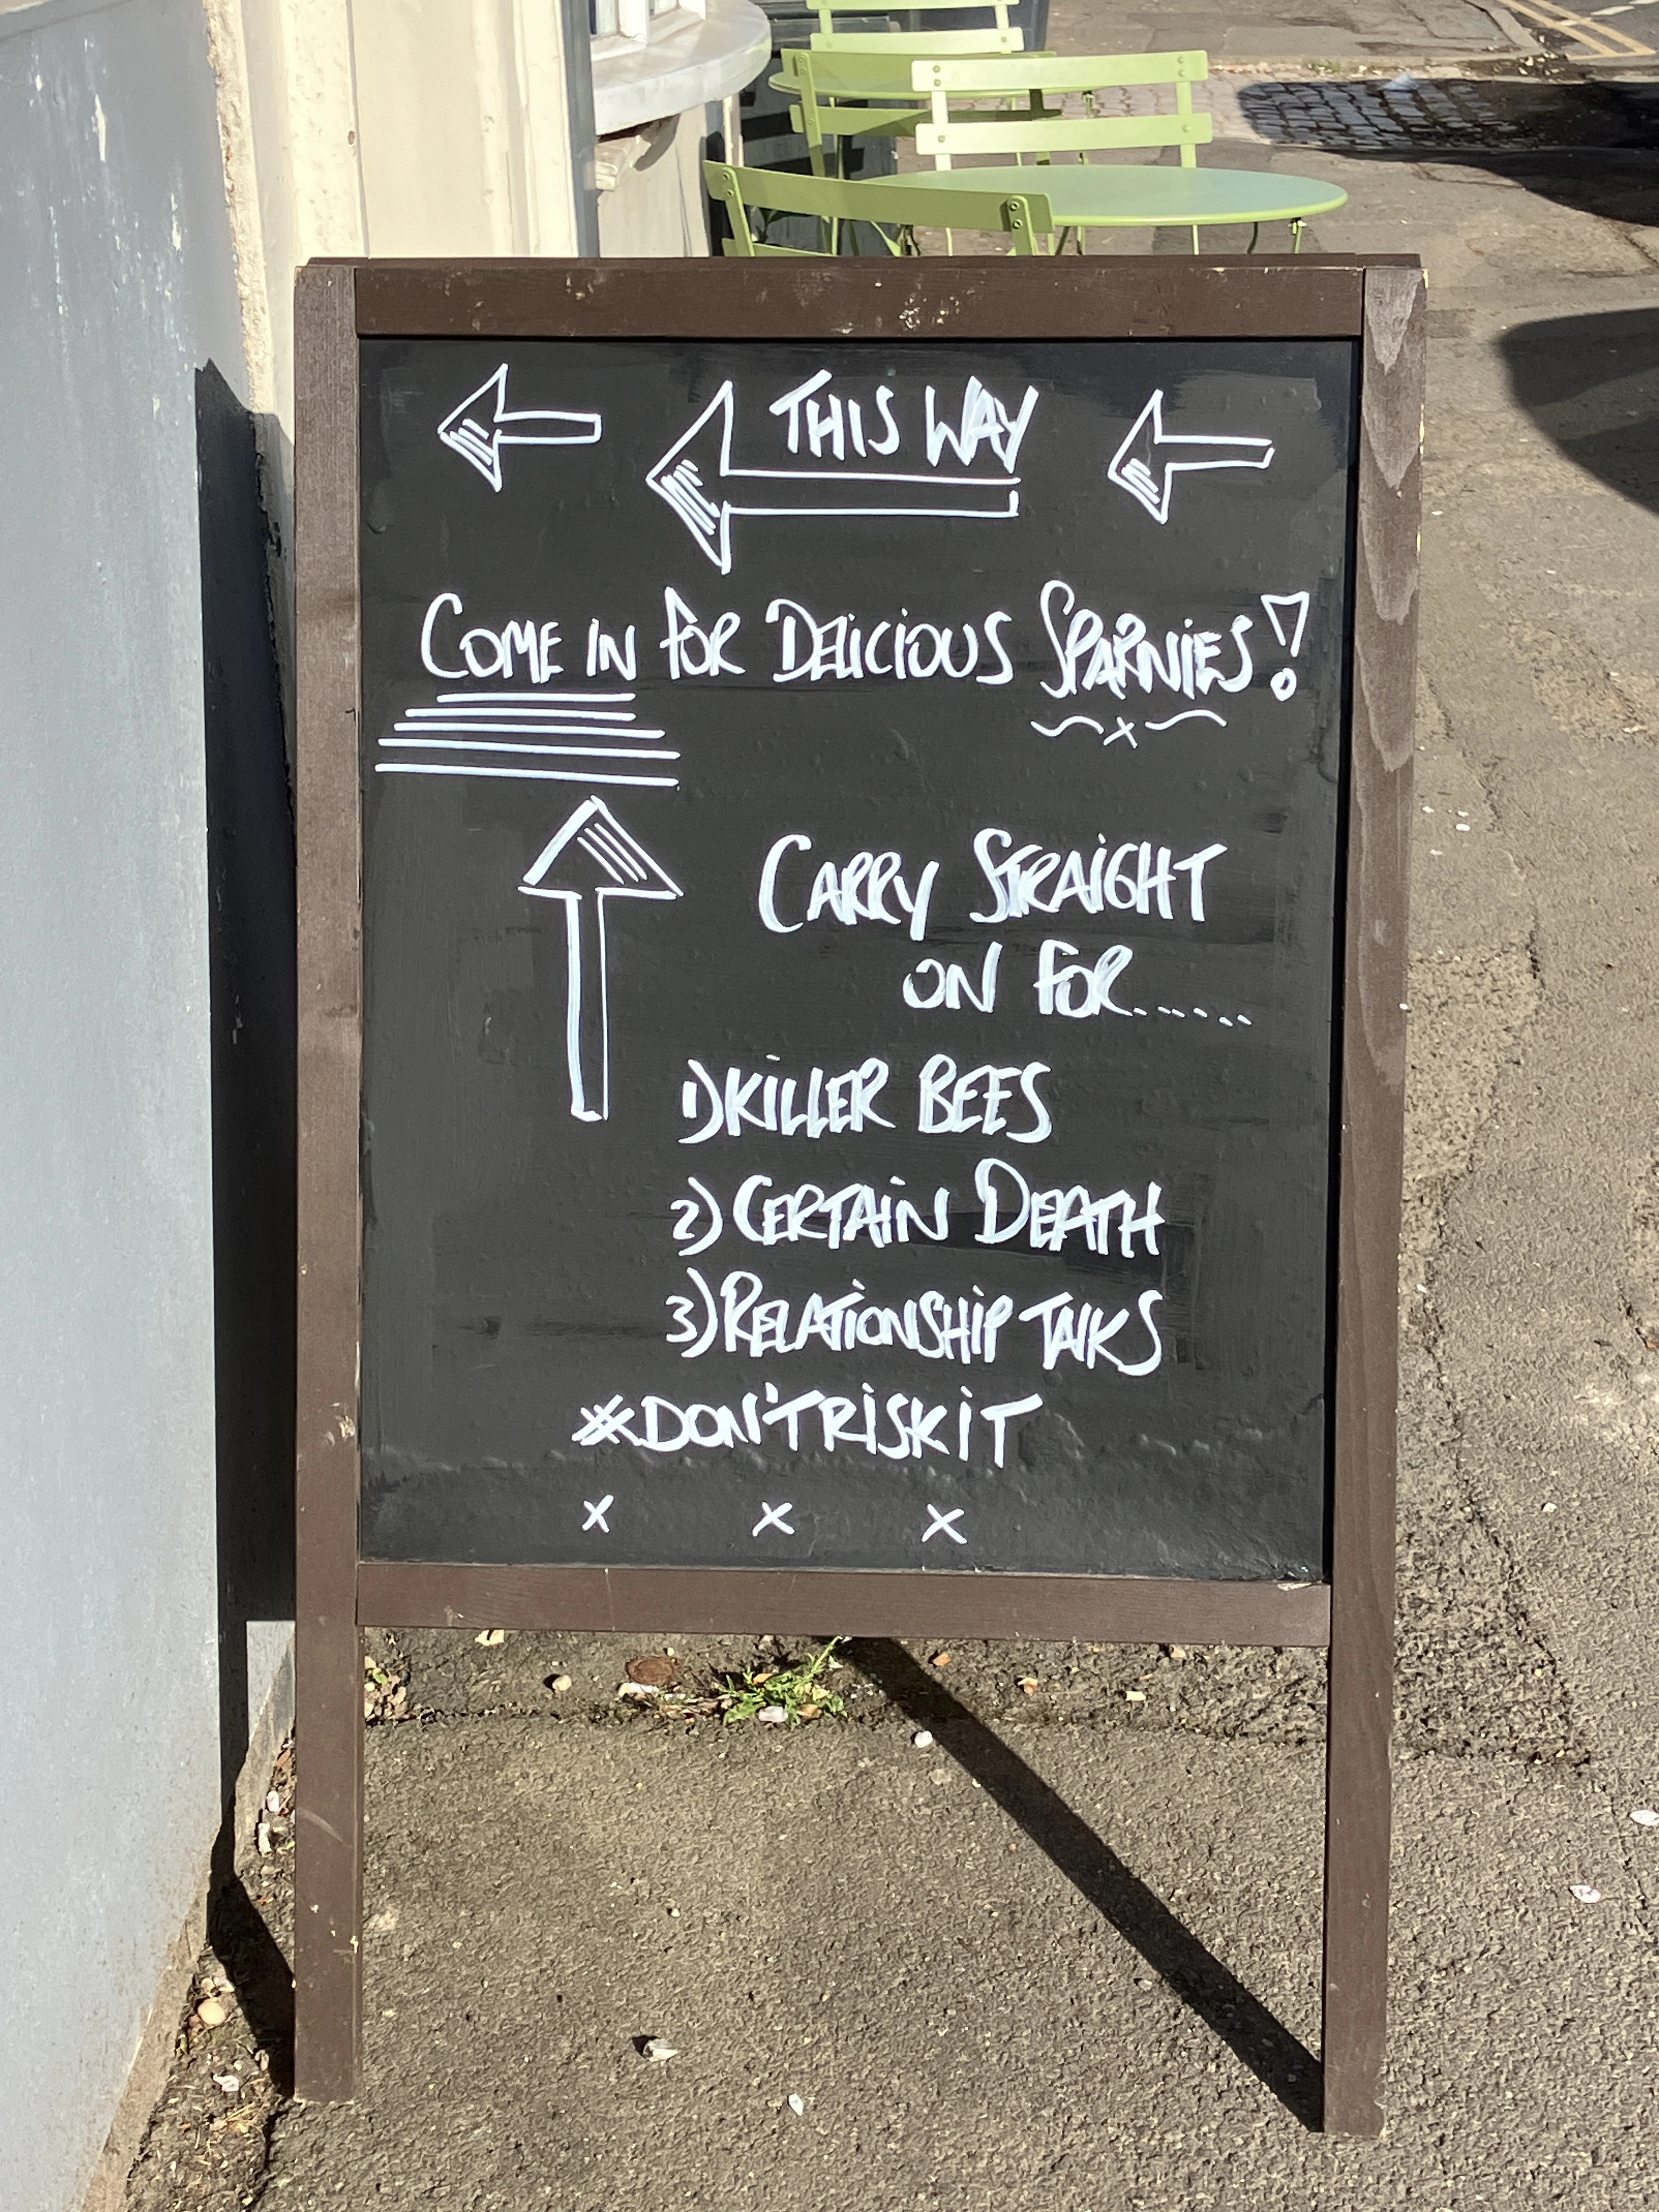 THIS WAY
COME IN FOR DELICIOUS SPARNIES!
CARRY STRAIGHT
ON FOR......
1) KILLER BEES
2) CERTAIN DEATH
3) RELATIONSHIP TALKS
#DON'TRISKIT
x x x